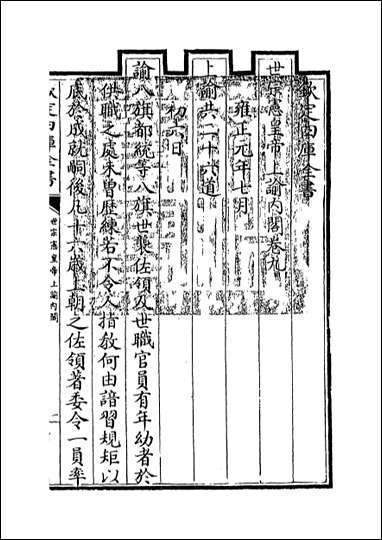 欽定四庫全書
世宗憲皇帝上諭內閣卷九
雍正元年七月
上諭共二十六道
初六日
諭八旗都統等八旗世襲佐領及世職官員有年幼者於
供職之處未曾歷練若不令人指教何由諳習規矩以
底於成就嗣後凡十六歲上朝之佐領著委令一員率
欽定四庫全書
世宗憲皇帝上諭內閣